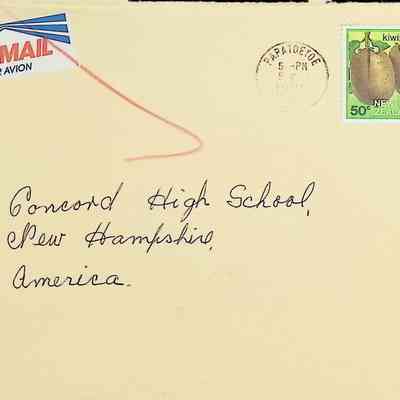 MAIL
AVION
PAPATOETOE
5 -PM
kiwi
50c
NEW
Concord High School,
New Hampshire,
America.